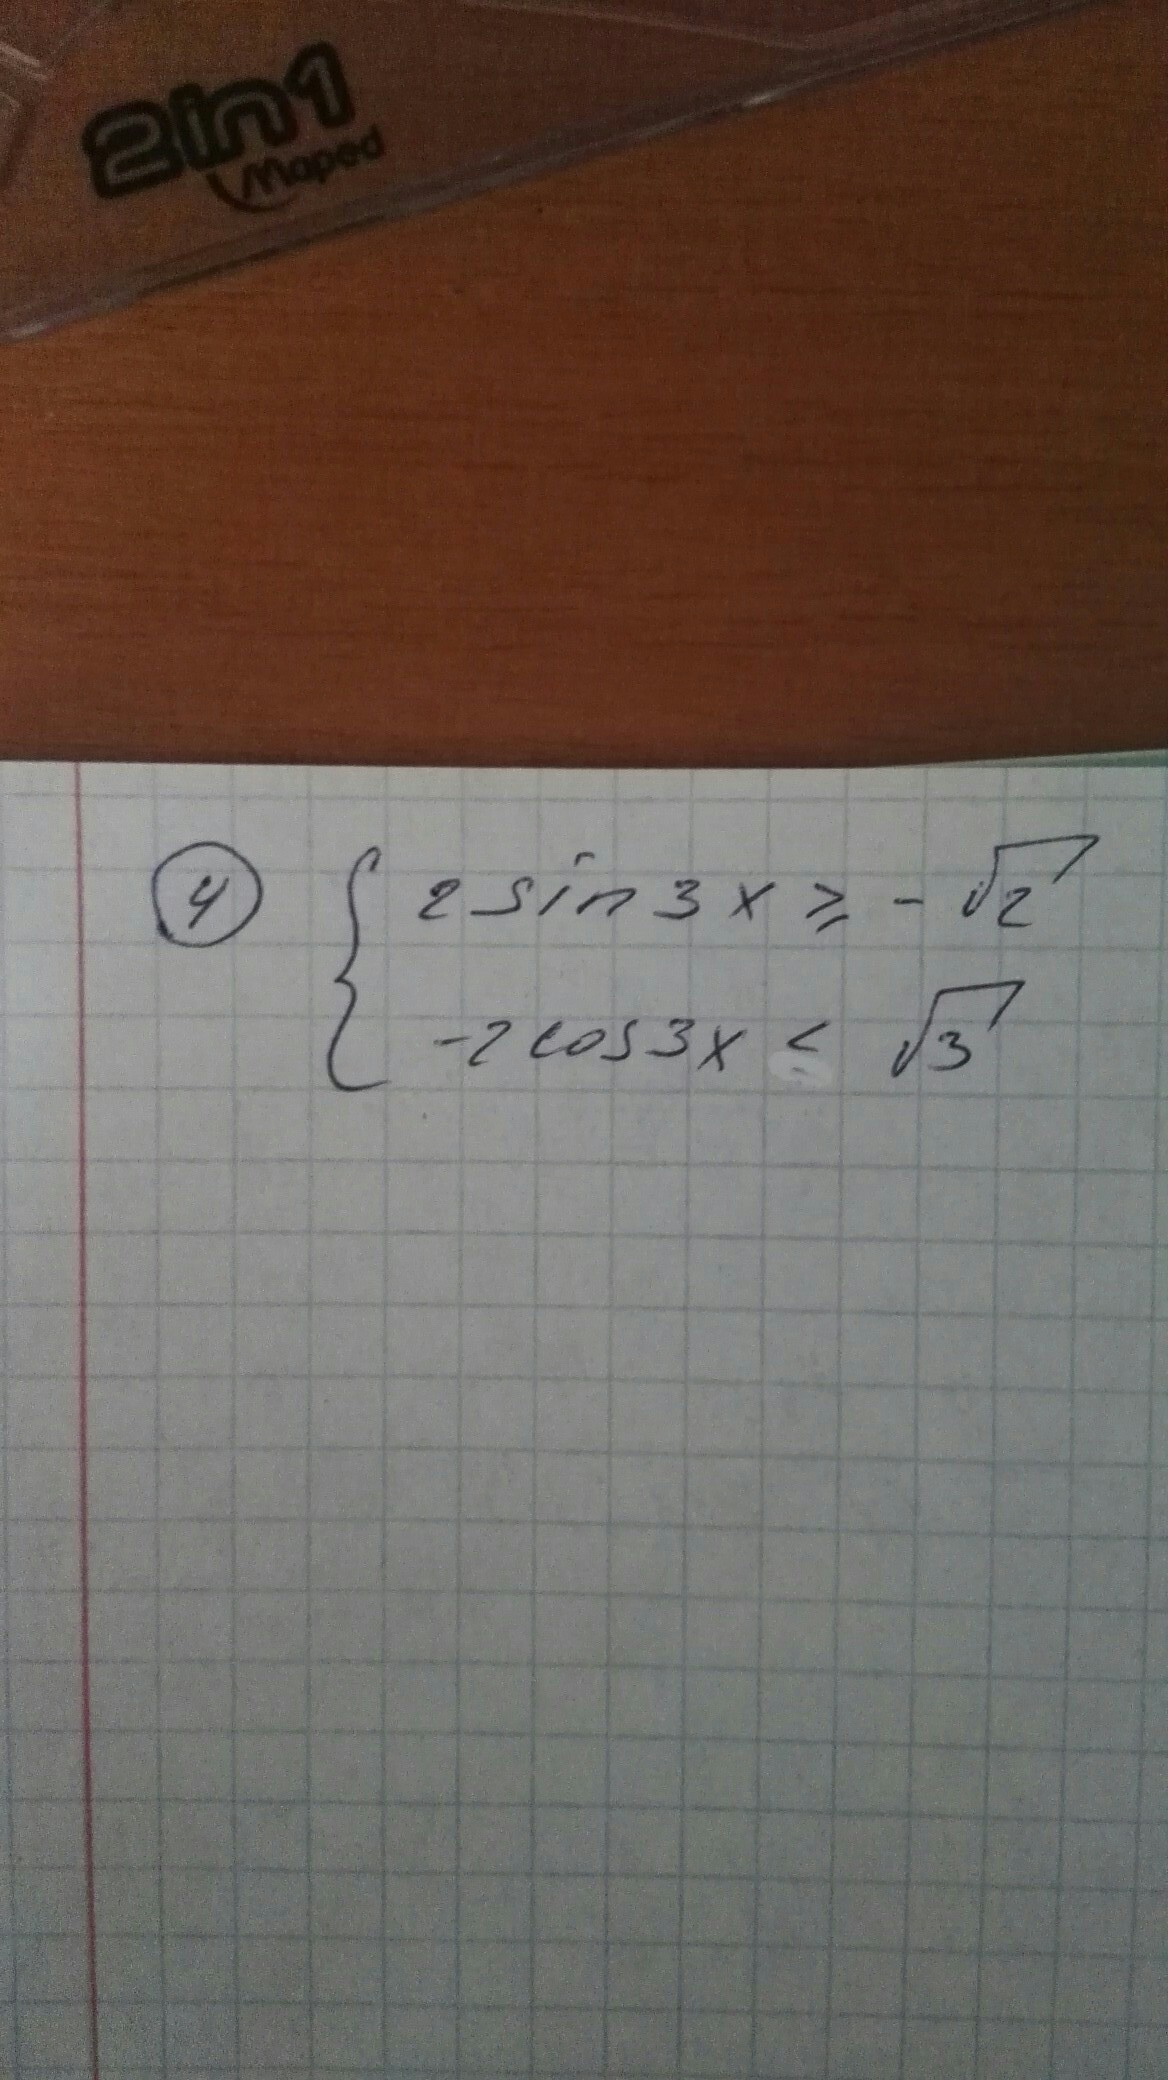 2in1
Maped
4
2 sin 3x ≥ - √2
-2 cos 3x < √3